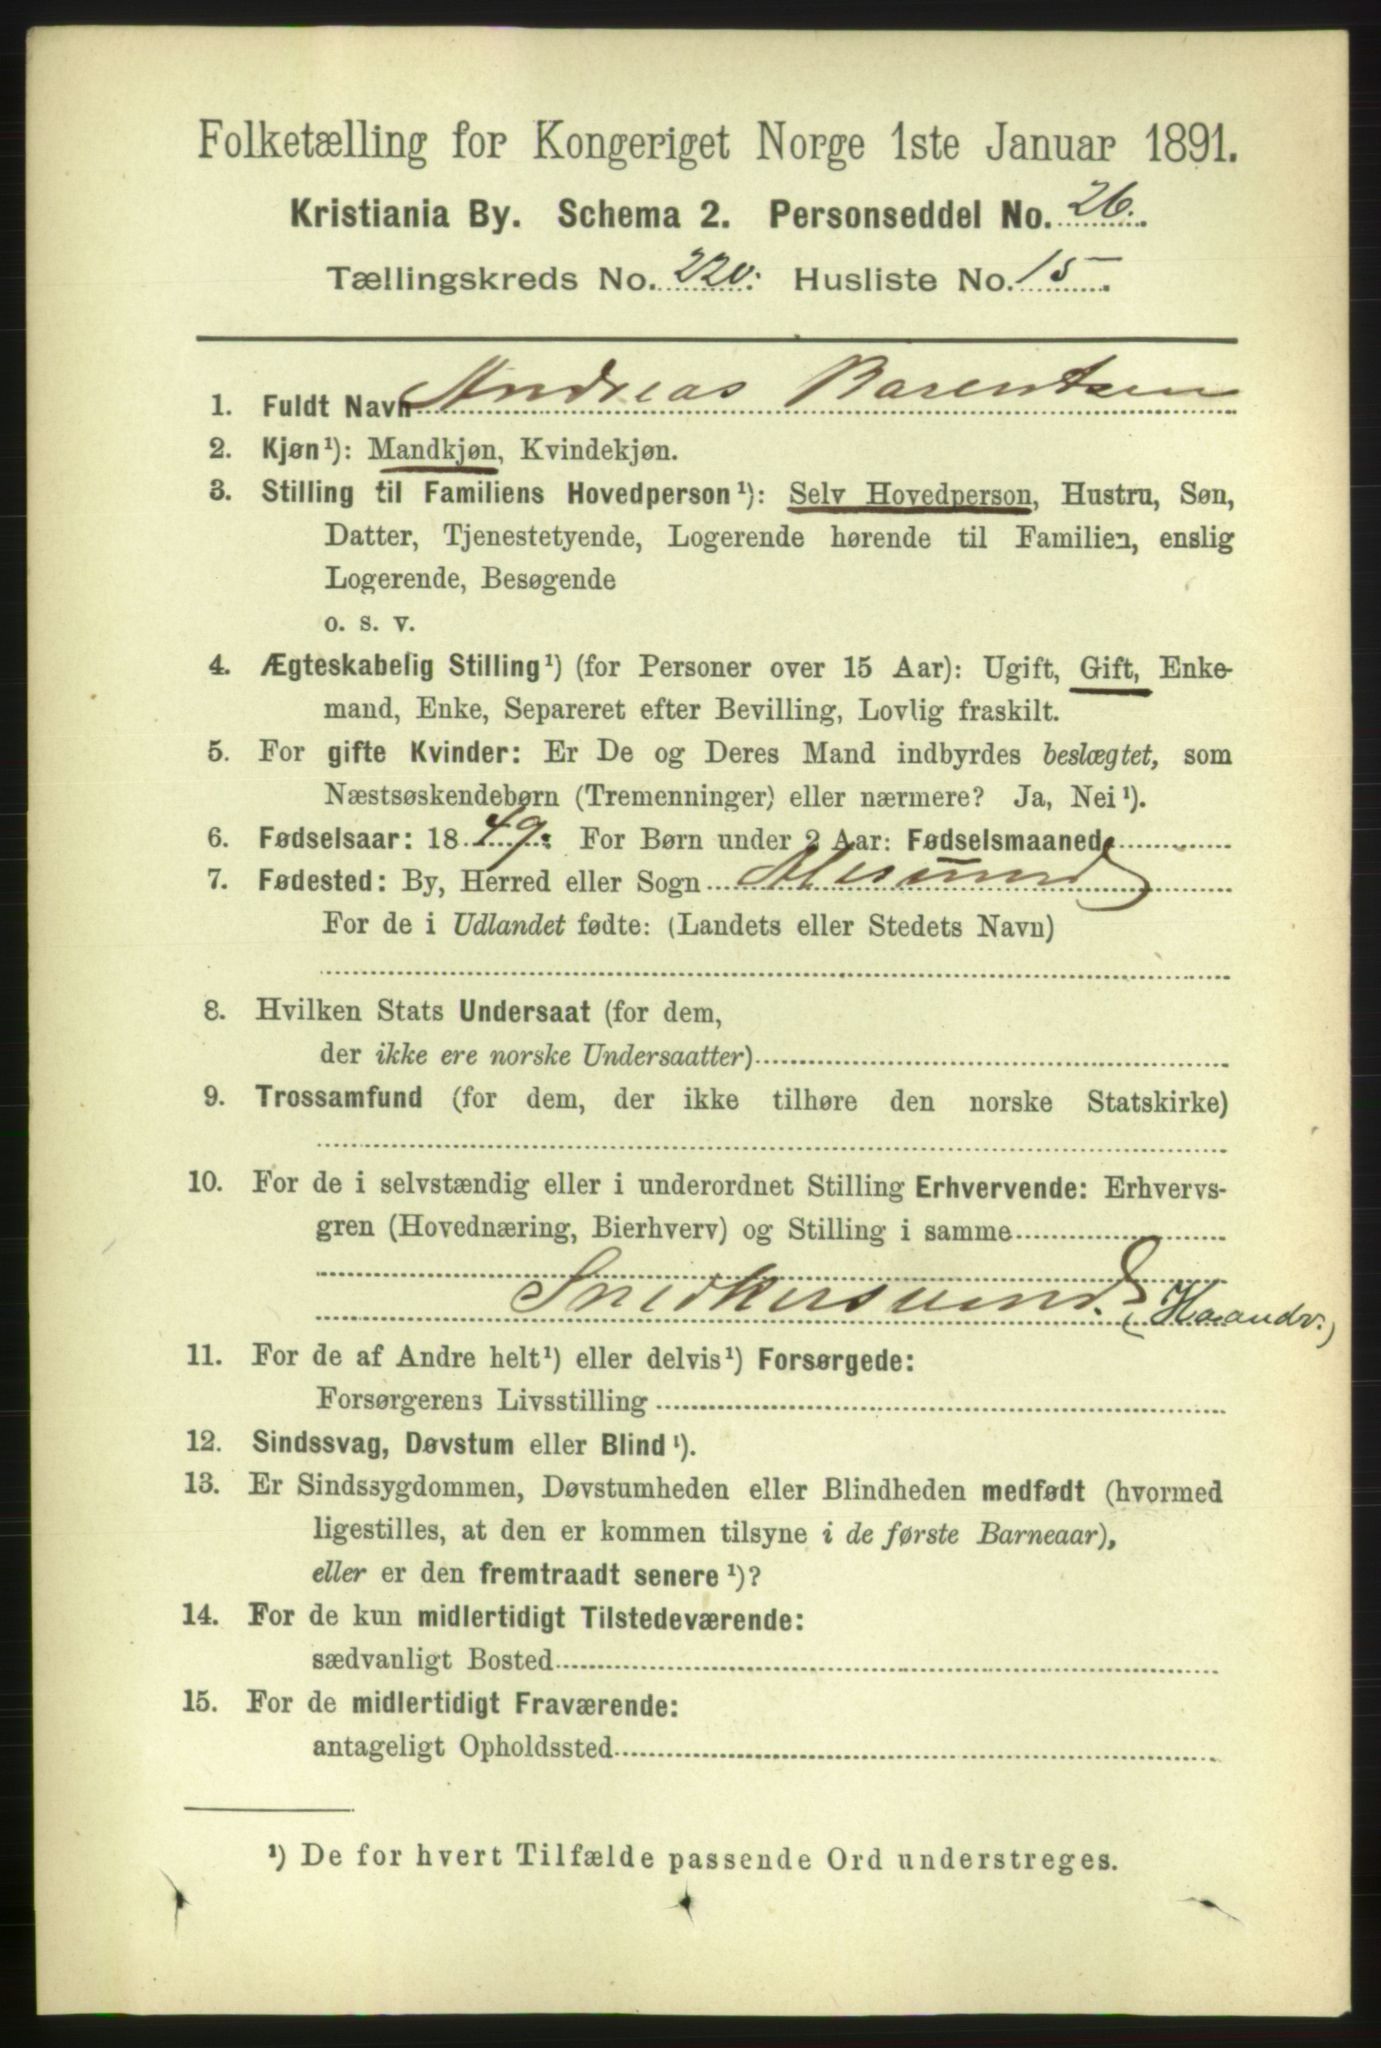 Folketælling for Kongeriget Norge 1ste Januar 1891.
Kristiania By. Schema 2. Personseddel No. 26.
Tællingskreds No. 220. Husliste No. 15
1. Fuldt Navn Andreas Barentsen
2. Kjøn¹): Mandkjøn, Kvindekjøn.
3. Stilling til Familiens Hovedperson¹): Selv Hovedperson, Hustru, Søn,
Datter, Tjenestetyende, Logerende hørende til Familien, enslig
Logerende, Besøgende
o. s. v.
4. Ægteskabelig Stilling¹) (for Personer over 15 Aar): Ugift, Gift, Enke-
mand, Enke, Separeret efter Bevilling, Lovlig fraskilt.
5. For gifte Kvinder: Er De og Deres Mand indbyrdes beslægtet, som
Næstsøskendebørn (Tremenninger) eller nærmere? Ja, Nei¹).
6. Fødselsaar: 1849. For Børn under 2 Aar: Fødselsmaaned
7. Fødested: By, Herred eller Sogn Alesund
For de i Udlandet fødte: (Landets eller Stedets Navn)
8. Hvilken Stats Undersaat (for dem,
der ikke ere norske Undersaatter)
9. Trossamfund (for dem, der ikke tilhøre den norske Statskirke)
10. For de i selvstændig eller i underordnet Stilling Erhvervende: Erhvervs-
gren (Hovednæring, Bierhverv) og Stilling i samme
Snedkersvend. (Haandv.)
11. For de af Andre helt¹) eller delvis¹) Forsørgede:
Forsørgerens Livsstilling
12. Sindssvag, Døvstum eller Blind¹).
13. Er Sindssygdommen, Døvstumheden eller Blindheden medfødt (hvormed
ligestilles, at den er kommen tilsyne i de første Barneaar),
eller er den fremtraadt senere¹)?
14. For de kun midlertidigt Tilstedeværende:
sædvanligt Bosted
15. For de midlertidigt Fraværende:
antageligt Opholdssted
¹) De for hvert Tilfælde passende Ord understreges.